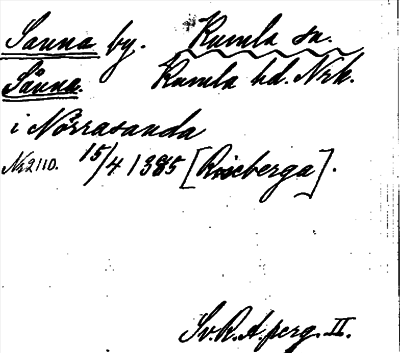 Sanna by. Kumla sn.
Sånna. Kumla hd. Nrk.
i Nørrasanda
Nr 2110. 15/4 1385 [Riseberga].
Sv. R. A. perg. II.